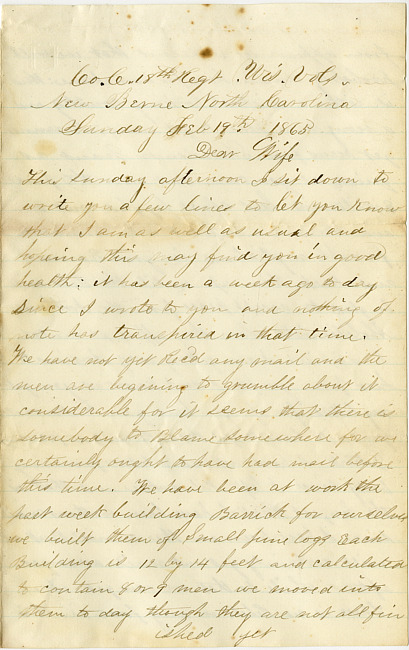 Co. C. 18th Regt Wis. Vols.
New Berne North Carolina
Sunday Feb 19th 1865
Dear Wife
This Sunday afternoon I sit down to
write you a few lines to let you know
that I am as well as usual and
hopeing this may find you in good
health; it has been a week ago to day
since I wrote to you and nothing of
note has transpired in that time.
We have not yet Recd any mail and the
men are begining to grumble about it
considerable for it seems that there is
somebody to Blame somewhere for we
certainly ought to have had mail before
this time. We have been at work the
past week building Barrick for ourselves
we built them of Small pine logs Each
Building is 12 by 14 feet and calculated
to contain 8 or 9 men we moved into
them to day though they are not all fin
ished yet